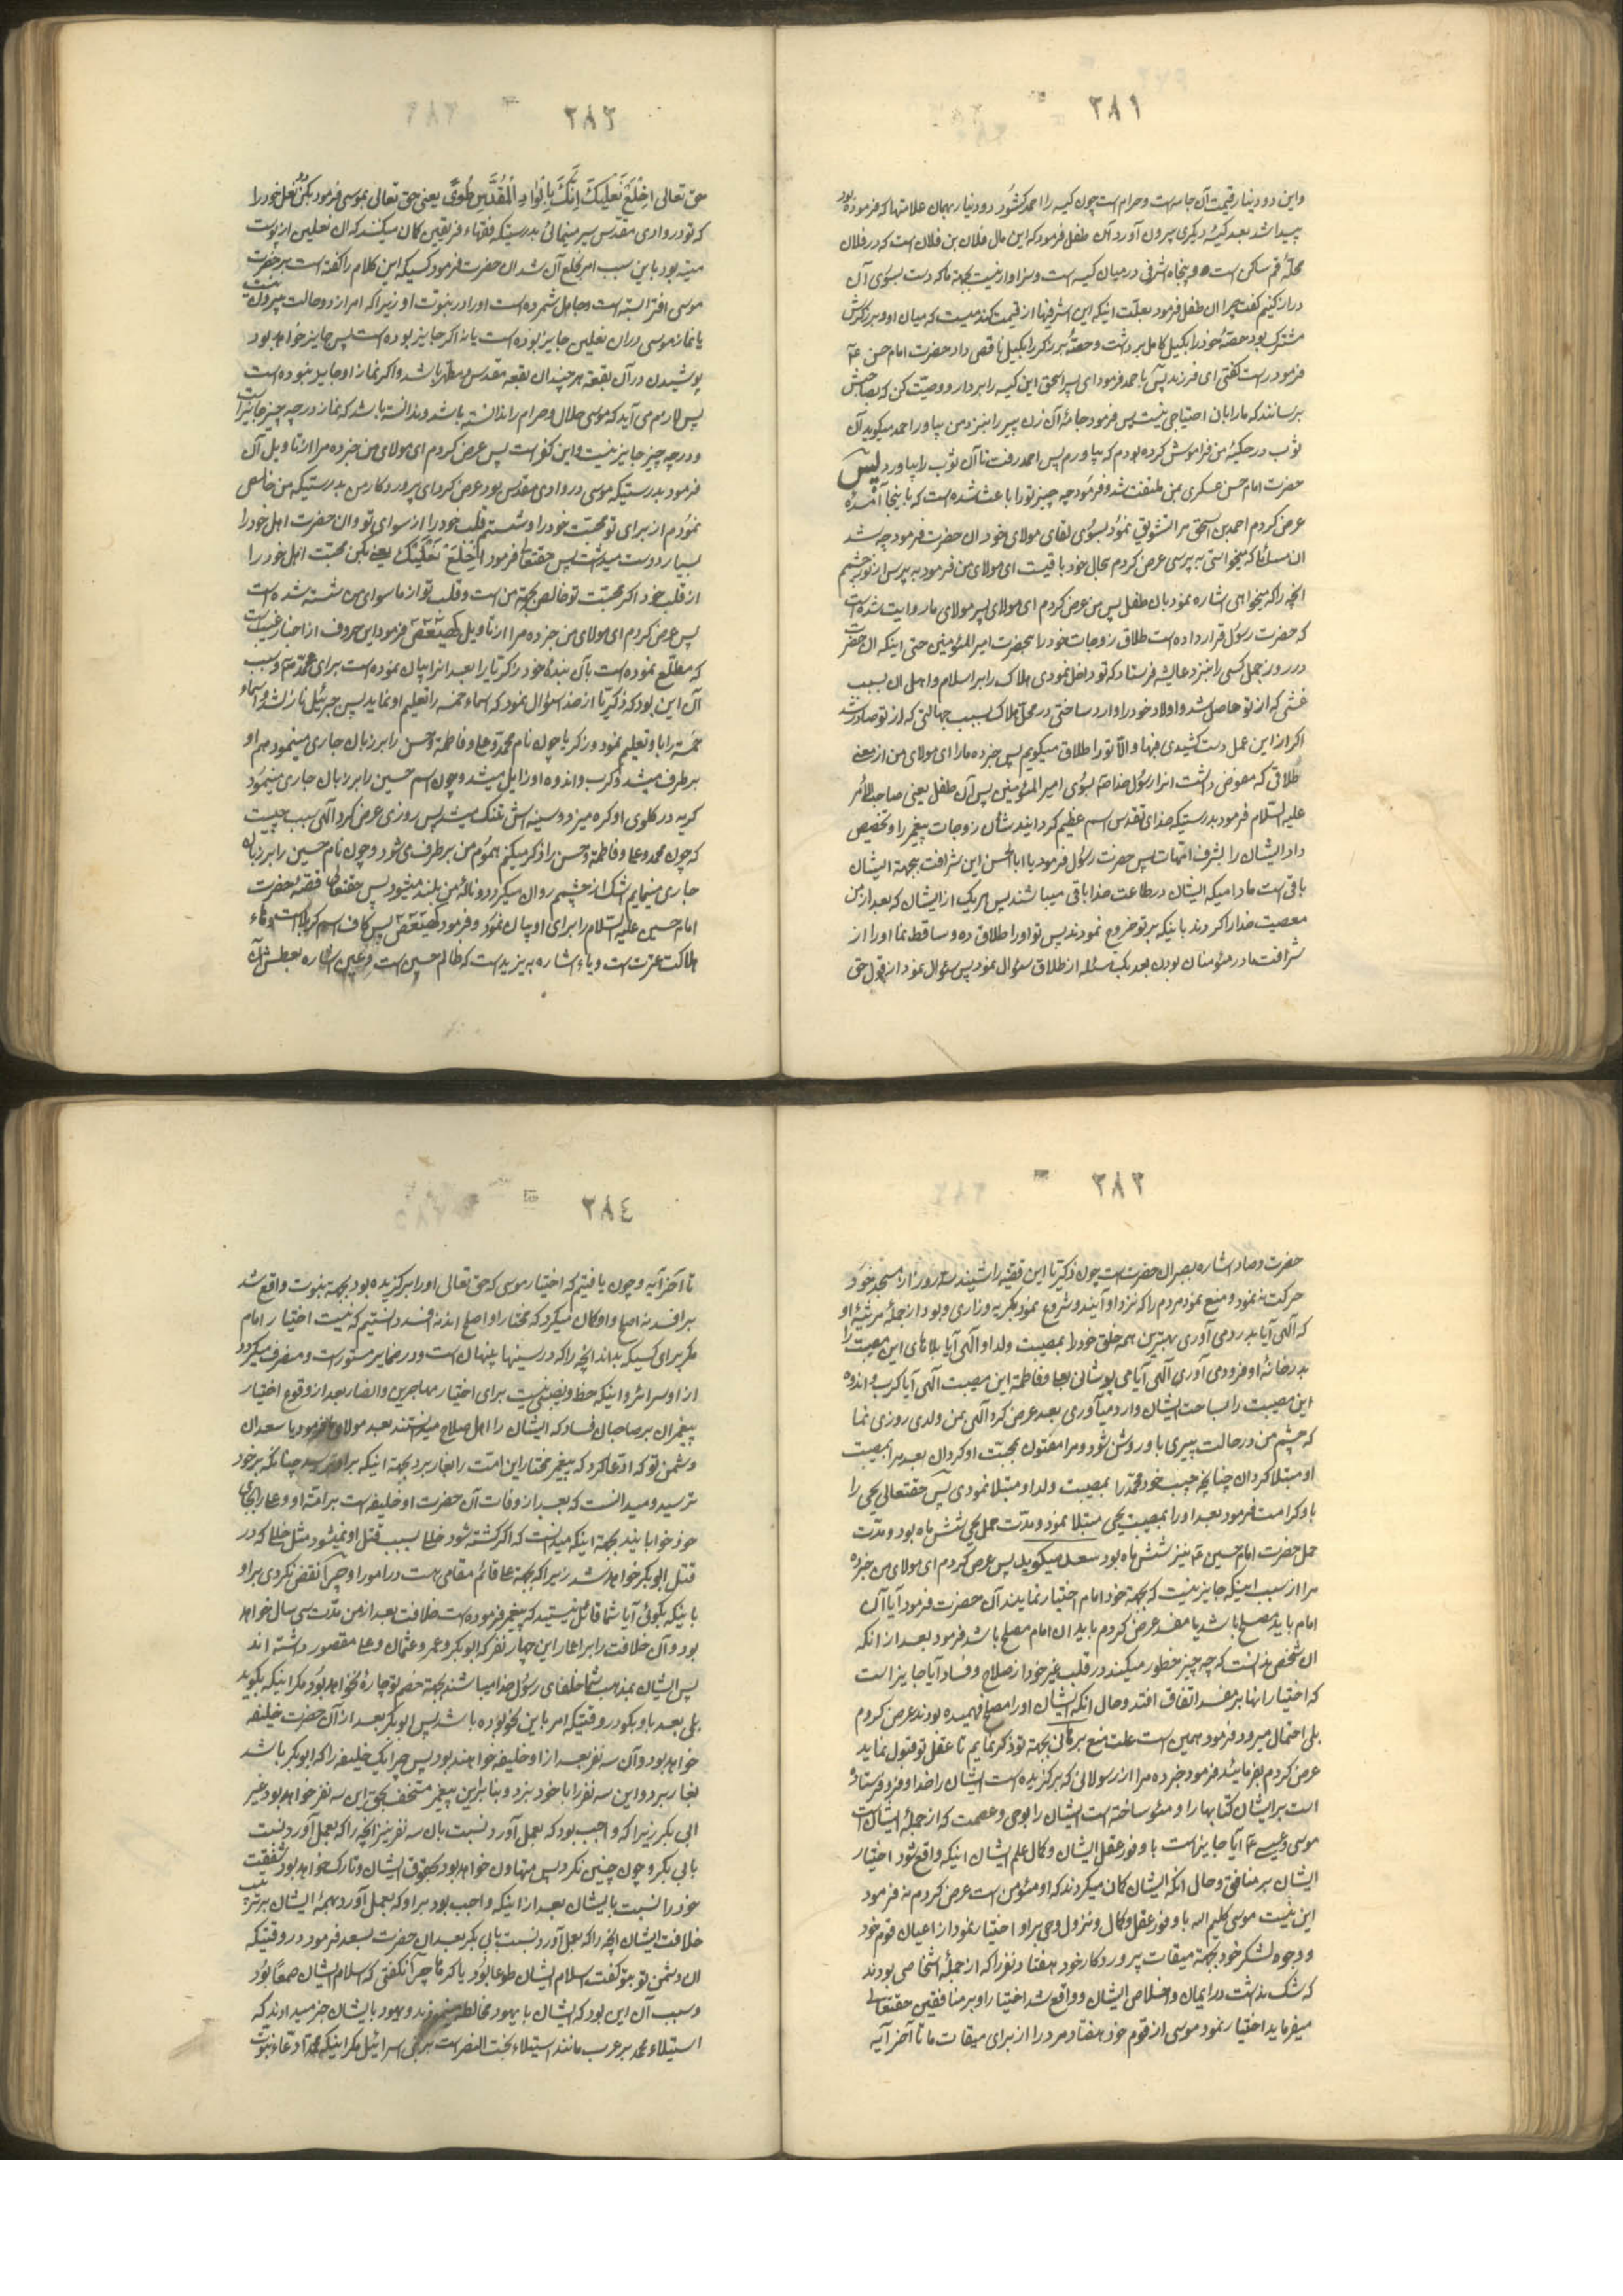 ۲۸۱
واین دو دینار قیمت آن جامه است و حرام است چون کیسه را احمد کشود دو دینار بهمان علامتها که فرموده بود
پیدا شد بعد کیسهٔ دیکری بیرون آورد آن طفل فرمود که این مال فلان بن فلان است که در فلان
محلهٔ قم ساکن است و پنجاه اشرفی در میان کیسه است و سزاوار نیست بجهة ما که دست بسوی آن
دراز کنیم گفت چرا آن طفل فرمود بعلت اینکه این اشرفیها از قیمت کندمیست که میان او و برزکرش
مشترک بود حصهٔ خود را بکیل کامل برداشت و حصهٔ برزکر را بکیل ناقص داد حضرت امام حسن ع
فرمود راست کفتی ای فرزند پس با احمد فرمود ای پسر اسحق این کیسه را بردار و وصیت کن که بصاحبش
برسانند که ما را بان احتیاجی نیست پس فرمود جامهٔ آن زن پیر را بنزد من بیاور احمد میکوید آن
ثوب در حکیبهٔ من فراموش کرده بودم که بیاورم پس احمد رفت تا آن ثوب را بیاورد پس
حضرت امام حسن عسکری بمن ملتفت شد و فرمود چه چیز تو را باعث شده است که باینجا آمدهٔ
عرض کردم احمد بن اسحق مرا تشویق نمود بسوی لقای مولای خود آن حضرت فرمود چه شد
آن مسائلکه میخواستی به پرسی عرض کردم بحال خود باقیست ای مولای من فرمود به پرس از نور چشمم
انچه را که میخواهی اشاره نمود بان طفل پس من عرض کردم ای مولای پسر مولای ما روایت شده است
که حضرت رسول قرار داده است طلاق زوجات خود را بحضرت امیر المؤمنین حتی اینکه آن حضرت
در روز جمل کسی را بنزد عایشه فرستاد که تو داخل نمودی هلاک را بر اسلام و اهل آن بسبب
غشی که از تو حاصل شد و اولاد خود را وارد ساختی در محل هلاک بسبب جهالتی که از تو صادر شد
اکر از این عمل دست کشیدی فبها و الا تو را طلاق میکویم پس خبر ده ما را ای مولای من از معنی
طلاقی که مفوض داشت انرا رسول خدا ص بسوی امیر المؤمنین پس آن طفل یعنی صاحب الامر
علیه السلام فرمود بدرستیکه خدای تقدس اسم عظیم کردانید شأن زوجات پیغمبر را و تخصیص
داد ایشان را بشرف امهات پس حضرت رسول فرمود یا ابا الحسن این شرافت بجهة ایشان
باقی است مادامیکه ایشان در طاعت خدا باقی میباشند پس هر یک از ایشان که بعد از من
معصیت خدا را کردند باینکه بر تو خروج نمودند پس تو او را طلاق ده و ساقط نما او را از
شرافت مادر مؤمنان بودن بعد یک مسئله از طلاق سؤال نمود پس سؤال نمود از قول حق
۲۸۲
حق تعالی اِخْلَعْ نَعْلَیْکَ اِنَّکَ بِالْوَادِ الْمُقَدَّسِ طُوًی یعنی حق تعالی بموسی فرمود بکن نعل خود را
که تو در وادی مقدس سیر مینمائی بدرستیکه فقهاء فریقین کمان میکنند که آن نعلین از پوست
میته بود باین سبب امر بخلع آن شد ان حضرت فرمود کسیکه این کلام را کفته است بر حضرت
موسی افترا بسته است و جاهل شمرده است او را در نبوت او زیرا که امر از دو حالت بیرون نیست
یا نماز موسی در ان نعلین جایز بوده است یا نه اکر جایز بوده است پس جایز خواهد بود
پوشیدن در آن بقعه هر چند ان بقعه مقدس و مطهر باشد و اکر نماز او جایز نبوده است
پس لازم می آید که موسی حلال و حرام را ندانسته باشد و ندانسته باشد که نماز در چه چیز جایز است
و در چه چیز جایز نیست و این کفر است پس عرض کردم ای مولای من خبر ده مرا از تاویل آن
فرمود بدرستیکه موسی در وادی مقدس بود عرض کرد ای پروردکار من بدرستیکه من خالص
نمودم از برای تو محبت خود را و شستم قلب خود را از سوای تو و ان حضرت اهل خود را
بسیار دوست میداشت پس حقتعالی فرمود اِخْلَعْ نَعْلَیْکَ یعنی بکن محبت اهل خود را
از قلب خود اکر محبت تو خالص بجهة من است و قلب تو از ما سوای من شسته شده است
پس عرض کردم ای مولای من خبر ده مرا از تاویل کهیعص فرمود این حروف از اخبار غیب است
که مطلع نموده است بآن بندهٔ خود زکریا را بعد انرا بیان نموده است برای محمد ص و سبب
آن این بود که زکریا از خدا سؤال نمود که اسماء خمسه را تعلیم او نماید پس جبرئیل نازل شد و اسماء
خمسه را باو تعلیم نمود و زکریا چون نام محمد و علی و فاطمه و حسن را بر زبان جاری مینمود هم او
بر طرف میشد و کرب و اندوه او زایل میشد و چون اسم حسین را بر زبان جاری مینمود
کریه در کلوی او کره میزد و سینه اش تنک میشد پس روزی عرض کرد الهی سبب چیست
که چون محمد و علی و فاطمه و حسن را ذکر میکنم هموم من بر طرف می شود و چون نام حسین را بر زبان
جاری مینمایم اشک از چشمم روان میکردد و نالهٔ من بلند میشود پس حقتعالی قصهٔ حضرت
امام حسین علیه السلام را برای او بیان نمود و فرمود کهیعص پس کاف اسم کربلا است و هاء
هلاکت عترت است و یاء اشاره به یزید است که ظالم حسین است و عین اشاره بعطش آن
۲۸۳
حضرت و صاد اشاره بصبر ان حضرت است چون زکریا این قصه را شنید سه روز از مسجد خود
حرکت ننمود و منع نمود مردم را که نزد او آیند و شروع نمود بکریه و زاری و بود از جملهٔ مرثیهٔ او
که الهی آیا بدرد می آوری بهترین همه خلق خود را بمصیبت ولد او الهی آیا بلاهای این مصیبت را
بدر خانهٔ او فرود می آوری الهی آیا می پوشانی بعلی و فاطمه این مصیبت الهی آیا کرب و اندوه
این مصیبت را بساحت ایشان وارد میآوری بعد عرض کرد الهی بمن ولدی روزی نما
که چشم من در حالت پیری باو روشن شود و مرا مفتون بمحبت او کردان بعد مرا بمصیبت
او مبتلا کردان چنانچه حبیب خود محمد را بمصیبت ولد او مبتلا نمودی پس حقتعالی یحیی را
باو کرامت فرمود بعد او را بمصیبت یحیی مبتلا نمود و مدت حمل یحیی شش ماه بود و مدت
حمل حضرت امام حسین ع نیز شش ماه بود سعد میکوید پس عرض کردم ای مولای من خبر ده
مرا از سبب اینکه جایز نیست که بجهة خود امام اختیار نمایند آن حضرت فرمود آیا آن
امام باید مصلح باشد یا مفسد عرض کردم باید ان امام مصلح باشد فرمود بعد از انکه
ان شخص ندانست که چه چیز خطور میکند در قلب غیر خود از صلاح و فساد آیا جایز است
که اختیار انها بر مفسد اتفاق افتد و حال انکه ایشان او را مصلح فهمیده بودند عرض کردم
بلی احتمال میرود فرمود همین است علت منع برهانی بجهة تو ذکر نمایم تا عقل تو قبول نماید
عرض کردم بفرمائید فرمود خبر ده مرا از رسولانی که برکزیده است ایشان را خدا و فرو فرستاده
است بر ایشان کتابها را و مؤید ساخته است ایشان را بوحی و عصمت که از جملهٔ ایشان است
موسی و عیسی ع آیا جایز است با وفور عقل ایشان و کمال علم ایشان اینکه واقع شود اختیار
ایشان بر منافق و حال انکه ایشان کمان میکردند که او مؤمن است عرض کردم نه فرمود
این نیست موسی کلیم الله با وفور عقل و کمال و نزول وحی بر او اختیار نمود از اعیان قوم خود
و وجوه لشکر خود بجهة میقات پروردکار خود هفتاد نفر را که از جملهٔ اشخاصی بودند
که شک نداشت در ایمان و اخلاص ایشان و واقع شد اختیار او بر منافقین حقتعالی
میفرماید اختیار نمود موسی از قوم خود هفتاد مرد را از برای میقات ما تا آخر آیه
۲۸٤
تا آخر آیه و چون یافتیم که اختیار موسی که حق تعالی او را برکزیده بود بجهة نبوت واقع شد
بر افسد نه اصلح و او کمان میکرد که مختار او اصلح است نه افسد دانستیم که نیست اختیار امام
مکر برای کسیکه بداند انچه را که در سینها پنهان است و در ضمایر مستور است و منصرف میکردد
از او سرائر و اینکه حظ و نصیبی نیست برای اختیار مهاجرین و انصار بعد از وقوع اختیار
پیغمبران بر صاحبان فساد که ایشان را اهل صلاح میدانستند بعد مولای ما فرمود یا سعد ان
دشمن تو که ادعا کرد که پیغمبر مختار این امت را بغار برد بجهة اینکه بر او ترسید چنانکه بر خود
ترسید و میدانست که بعد از وفات آن حضرت او خلیفه است بر امت او و علی را بجای
خود خوابانید بجهة اینکه میدانست که اکر کشته شود خللی بسبب قتل او نمیشود مثل خللی که در
قتل ابو بکر خواهد شد زیرا که بجهة علی قائم مقامی هست در امور او چرا نقض نکردی بر او
باینکه بکوئی آیا شما قائل نیستید که پیغمبر فرموده است خلافت بعد از من مدت سی سال خواهد
بود و آن خلافت را بر اعمار این چهار نفر که ابو بکر و عمر و عثمان و علی مقصور داشته اند
پس ایشان بمذهب شما خلفای رسول خدا میباشند بجهة خصم تو چارهٔ نخواهد بود مکر اینکه بکوید
بلی بعد باو بکو در وقتیکه امر باین نحو بوده باشد پس ابو بکر بعد از آن حضرت خلیفه
خواهد بود و آن سه نفر بعد از او خلیفه خواهند بود پس چرا یک خلیفه را که ابو بکر باشد
بغار برد و این سه نفر را با خود نبرد و بنابر این پیغمبر مستخف بحق این سه نفر خواهد بود غیر
ابی بکر زیرا که واجب بود که بعمل آورد نسبت بان سه نفر نیز انچه را که بعمل آورد نسبت
بابی بکر و چون چنین نکرد پس متهاون خواهد بود بحقوق ایشان و تارک خواهد بود شفقت
خود را نسبت بایشان بعد از اینکه واجب بود بر او که بعمل آورد بهمهٔ ایشان بر ترتیب
خلافت ایشان انچه را که بعمل آورد نسبت بابی بکر بعد ان حضرت بسعد فرمود در وقتیکه
ان دشمن تو بتو کفت اسلام ایشان طوعا بود یا کرها چرا نکفتی که اسلام ایشان طمعا بود
و سبب آن این بود که ایشان با یهود مخالطه مینمودند و یهود بایشان خبر میدادند که
استیلاء محمد بر عرب مانند استیلاء بخت النصر است بر بنی اسرائیل مکر اینکه محمد ادعاء نبوت